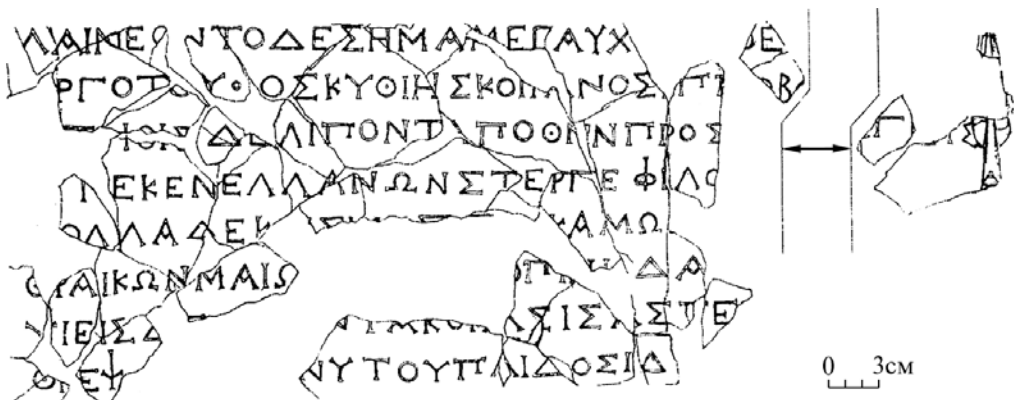 ΛΑΙΝΕΟΝΤΟΔΕΣΗΜΑΜΕΓΑΥΧ ΟΕ
ΡΓΟΤΟΥ ΟΣΚΥΘΙΗΣΚΟΙΡΑΝΟΣΙΠΠ ΟΒ
ΔΕΛΙΠΟΝΤΙΠΟΘΗΝΠΡΟΣ Γ
ΝΕΚΕΝΕΛΛΑΝΩΝΣΤΕΡΓΕΦΙΛΟ
ΟΛΛΑΔΕΚ ΚΑΜΩ
ΘΡΑΙΚΩΝΜΑΙΩ ΔΑ
ΥΙΕΙΣΔ ΣΙΣΑΣΤΕ
ΘΡΕΨ ΑΥΤΟΥΠΑΙΔΟΣΙΔ
0 3см